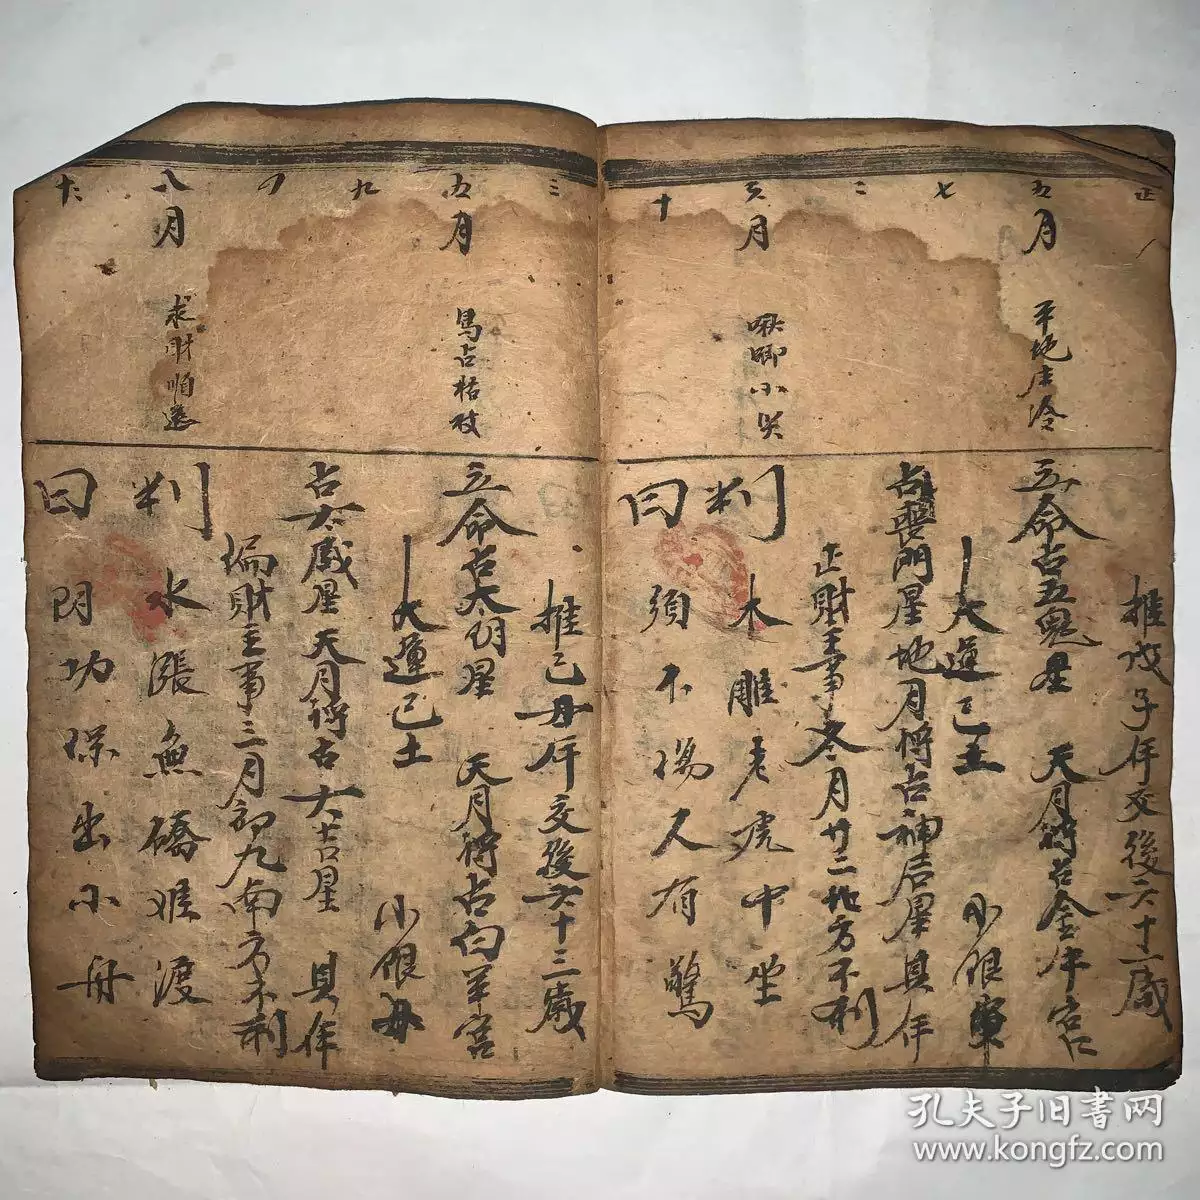 正
五月
平地
七
二
六月
啾唧小哭
十
推戊子年交後六十一歲
立命占五鬼星 天月將占金牛宮
大運己土 小限
占喪門星地月將占神后星 其年
正財主事冬月廿二北方不利
判
曰
木雕老虎中堂
須不傷人有驚
三
五月
馬占
九
八月
求財順
推己丑年交後六十二歲
立命占太阴星 天月將占白羊宮
大運己土 小限丑
占太歲星天月將占大吉星 其年
偏財主事三月初九南方不利
判
曰
水漲魚橋难渡
阴功保出小舟
孔夫子旧书网
www.kongfz.com